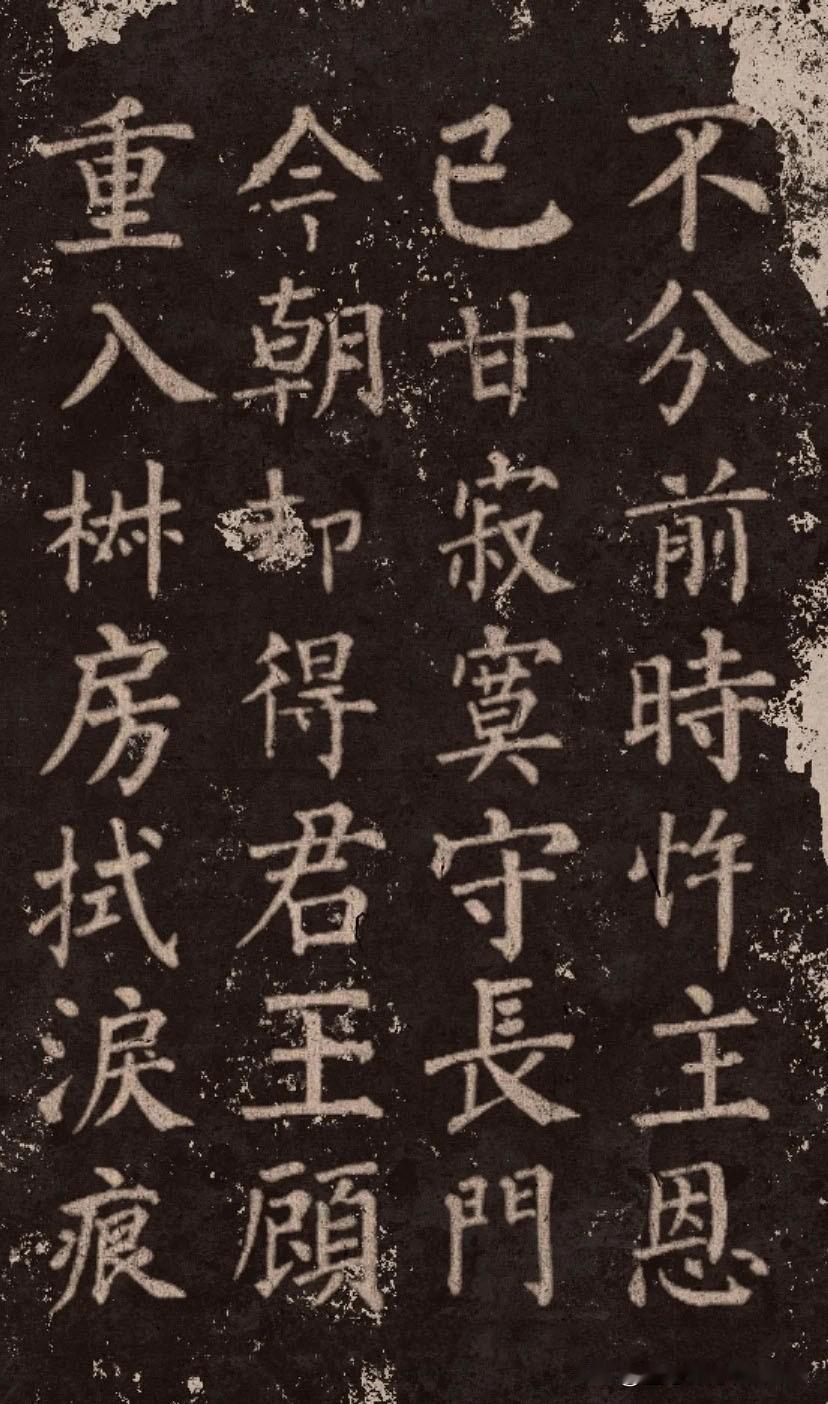 不分前時忤主恩
已甘寂寞守長門
今朝却得君王顧
重入椒房拭淚痕